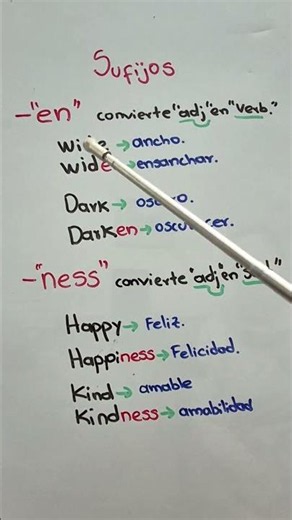 Sufijos
-"en" convierte "adj" en "verb."
→ ancho.
→ ensanchar.
Dark →
Darken →
-"ness" convierte "adj" en
Happy → Feliz.
Happiness → Felicidad.
Kind → amable
Kindness → amabilidad